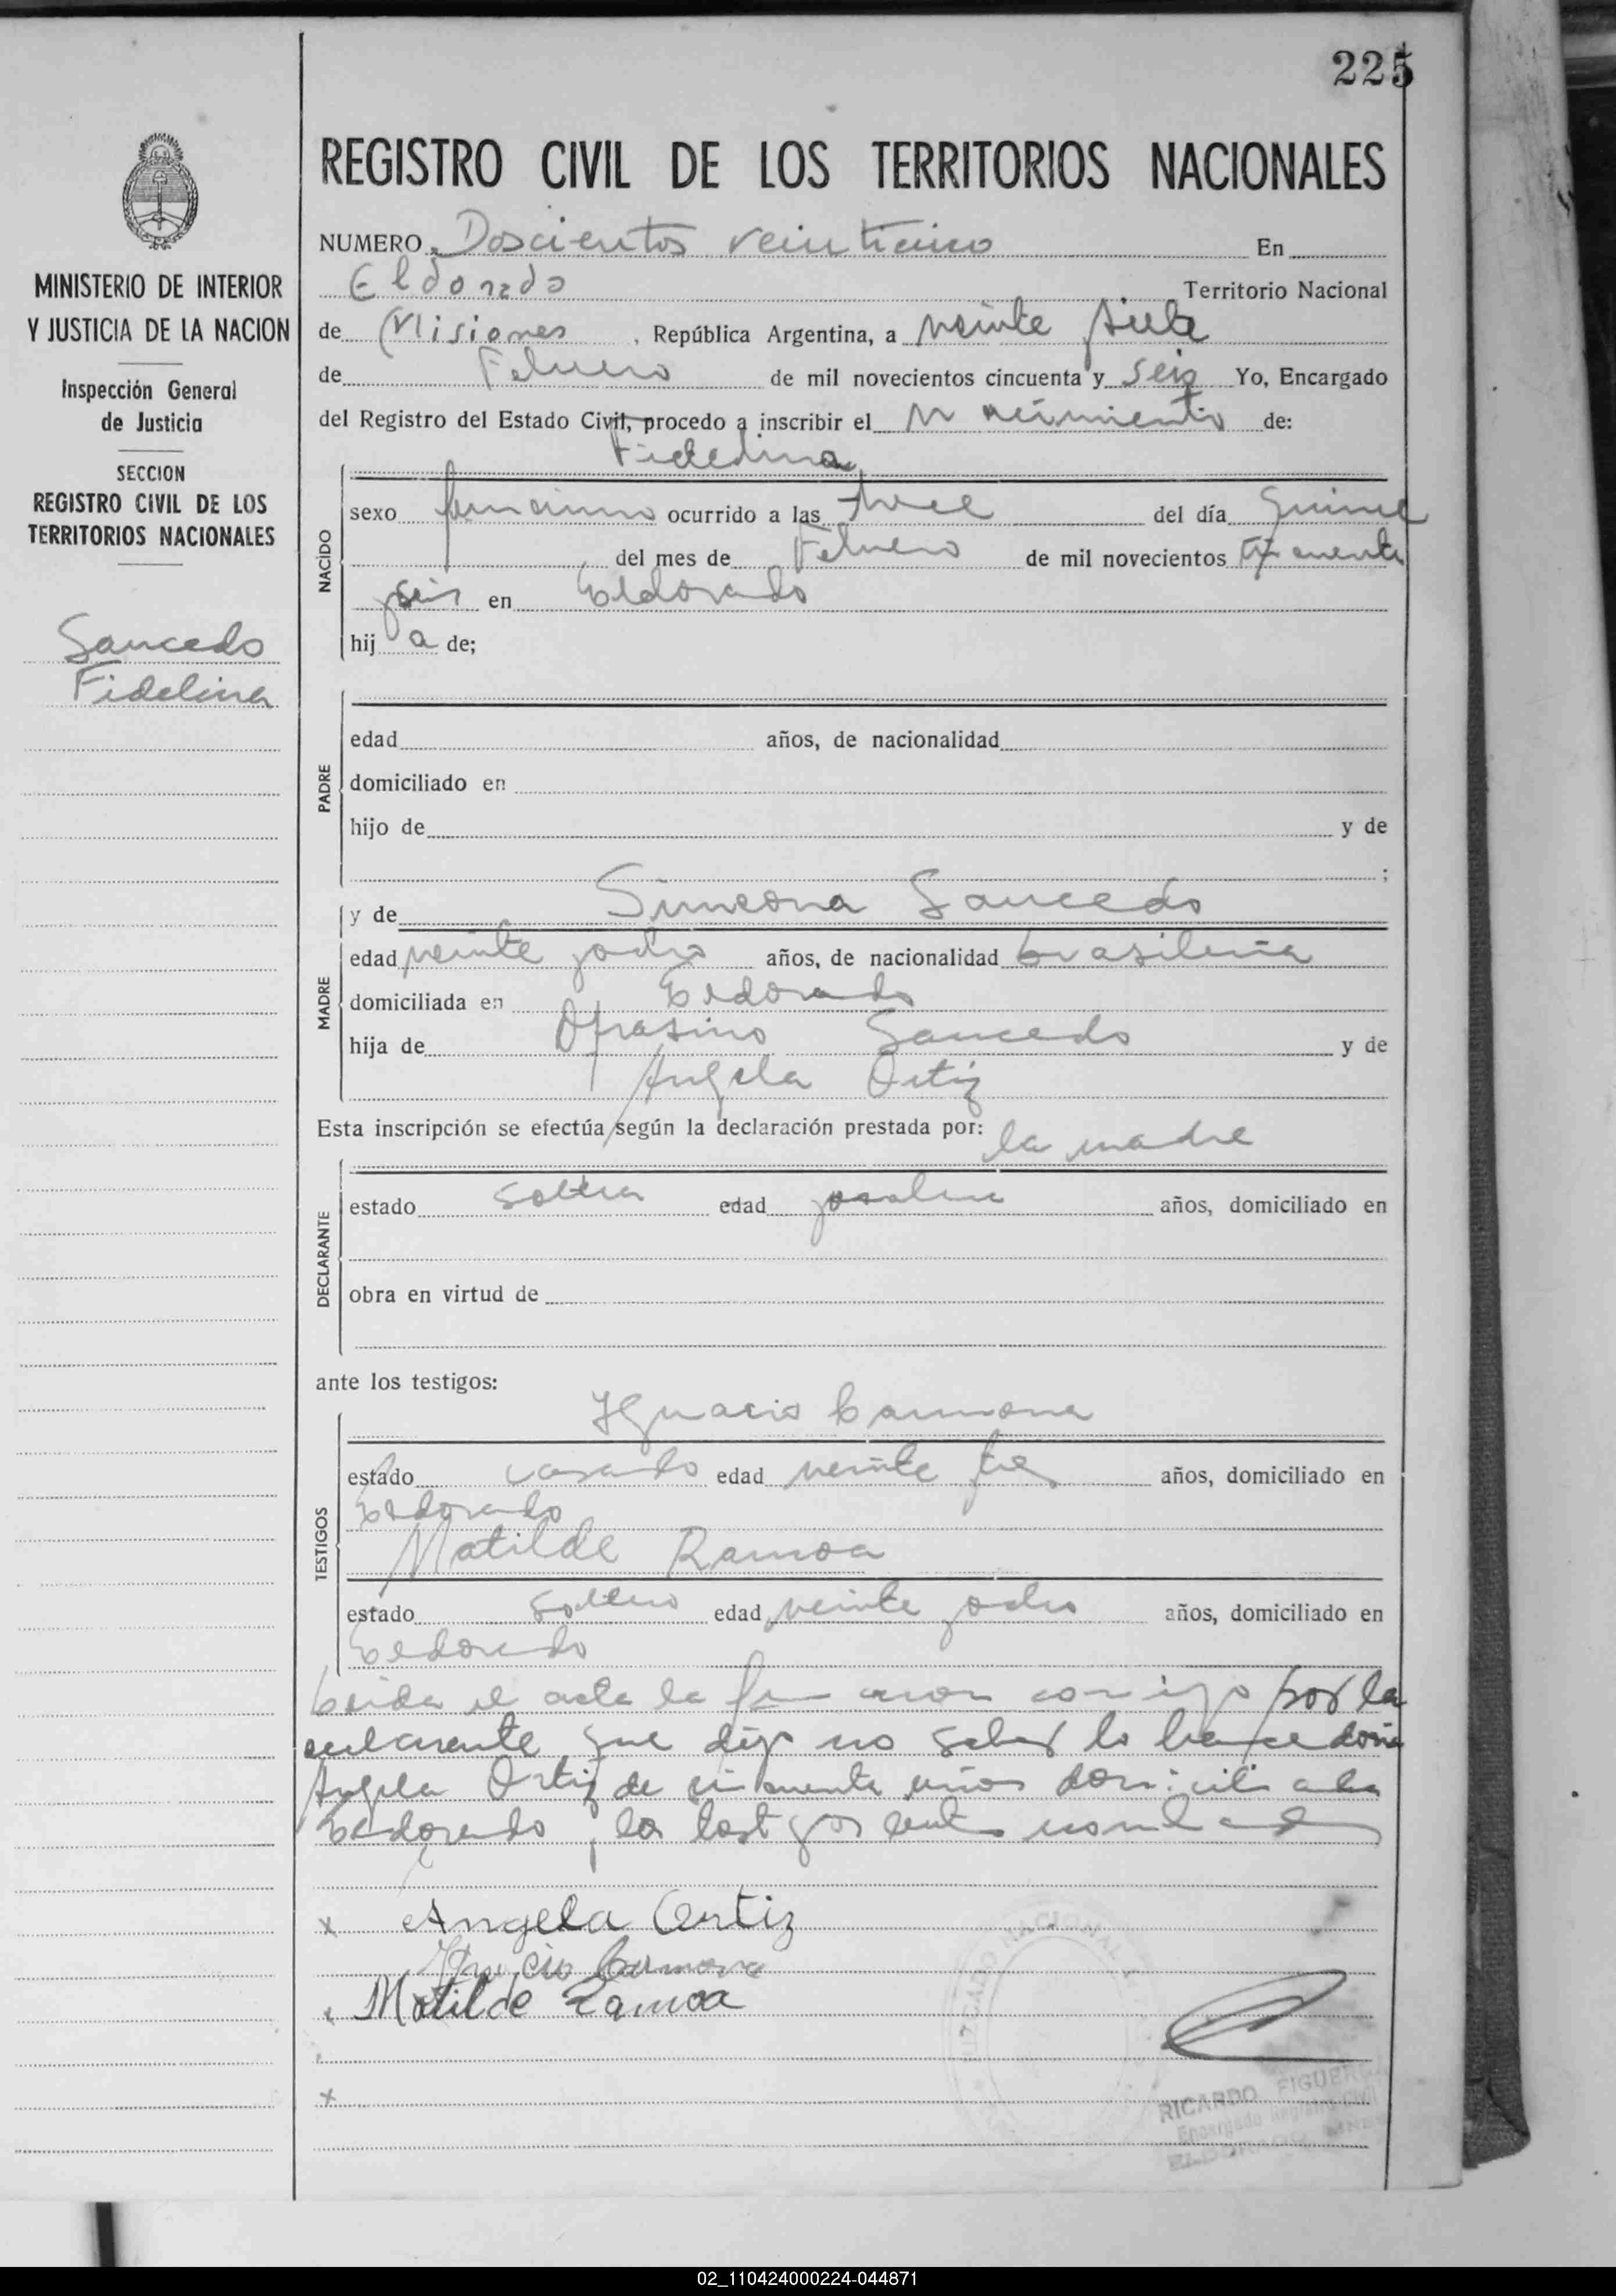 225
REGISTRO CIVIL DE LOS TERRITORIOS NACIONALES
MINISTERIO DE INTERIOR
Y JUSTICIA DE LA NACION
Inspección General
de Justicia
SECCION
REGISTRO CIVIL DE LOS
TERRITORIOS NACIONALES
Saucedo
Fidelina
NUMERO Doscientos veinticinco En
Eldorado Territorio Nacional
de Misiones, República Argentina, a veinte siete
de Febrero de mil novecientos cincuenta y seis Yo, Encargado
del Registro del Estado Civil, procedo a inscribir el nacimiento de:
Fidelina
NACIDO
sexo femenino ocurrido a las trece del día quince
del mes de Febrero de mil novecientos cincuenta
y seis en Eldorado
hij a de;
PADRE
edad años, de nacionalidad
domiciliado en
hijo de y de
;
y de Simeona Saucedo
MADRE
edad veinte y ocho años, de nacionalidad brasileña
domiciliada en Eldorado
hija de Saucedo y de
Angela Ortiz
Esta inscripción se efectúa según la declaración prestada por: la madre
DECLARANTE
estado soltera edad años, domiciliado en
obra en virtud de
ante los testigos:
Ignacio Carmona
TESTIGOS
estado casado edad veinte años, domiciliado en
Eldorado
Matilde Ramoa
estado soltero edad veinte y ocho años, domiciliado en
Eldorado
Leida el acta la firmaron conmigo por la
declarante que dijo no saber lo hace doña
Angela Ortiz de cincuenta años domiciliada
Eldorado y los testigos
x Angela Ortiz
Ignacio Carmona
x Matilde Ramoa
x
JUZGADO NACIONAL
RICARDO FIGUEREDO
Encargado Registro Civil
ELDORADO
02_110424000224-044871